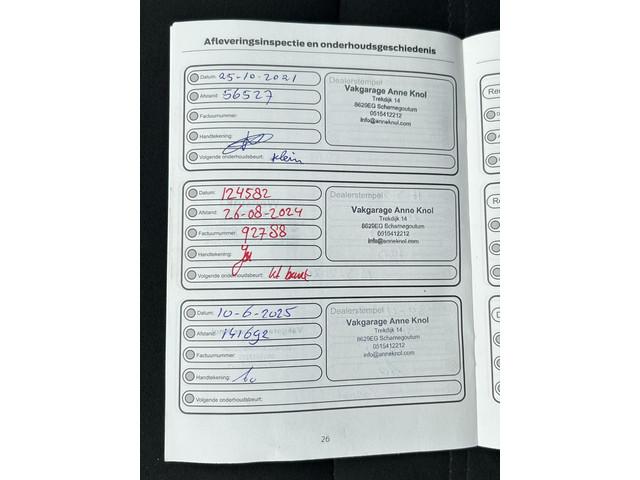 Afleveringsinspectie en onderhoudsgeschiedenis
Datum: 25-10-2021
Afstand: 56527
Factuurnummer:
Handtekening:
Volgende onderhoudsbeurt: Klein
Dealerstempel
Vakgarage Anne Knol
Trekdijk 14
8629EG Scharnegoutum
0515412212
info@anneknol.com
Datum: 124582
Afstand: 26-08-2024
Factuurnummer: 92788
Handtekening:
Volgende onderhoudsbeurt: kl beurt
Dealerstempel
Vakgarage Anne Knol
Trekdijk 14
8629EG Scharnegoutum
0515412212
info@anneknol.com
Datum: 10-6-2025
Afstand: 141692
Factuurnummer:
Handtekening:
Volgende onderhoudsbeurt:
Dealerstempel
Vakgarage Anne Knol
Trekdijk 14
8629EG Scharnegoutum
0515412212
info@anneknol.com
26